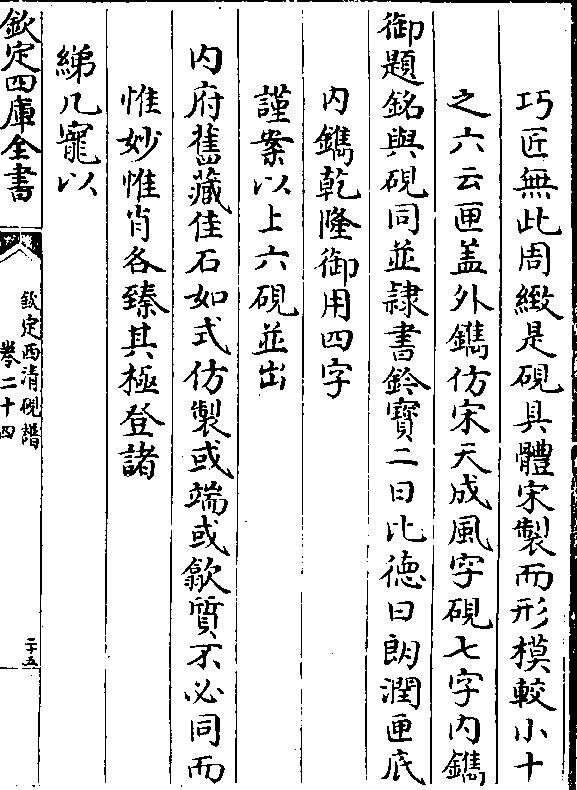 巧匠無此周緻是硯具體宋製而形模較小十
之六云匣盖外鐫仿宋天成風字硯七字内鐫
御題銘與硯同並隸書鈐寳二曰比徳曰朗潤匣底
内鐫乾隆御用四字
謹案以上六硯並出
内府舊藏佳石如式仿製或端或歙質不必同而
惟妙惟肖各臻其極登諸
綈几寵以
欽定四庫全書
欽定西清硯譜
卷二十四
二十五